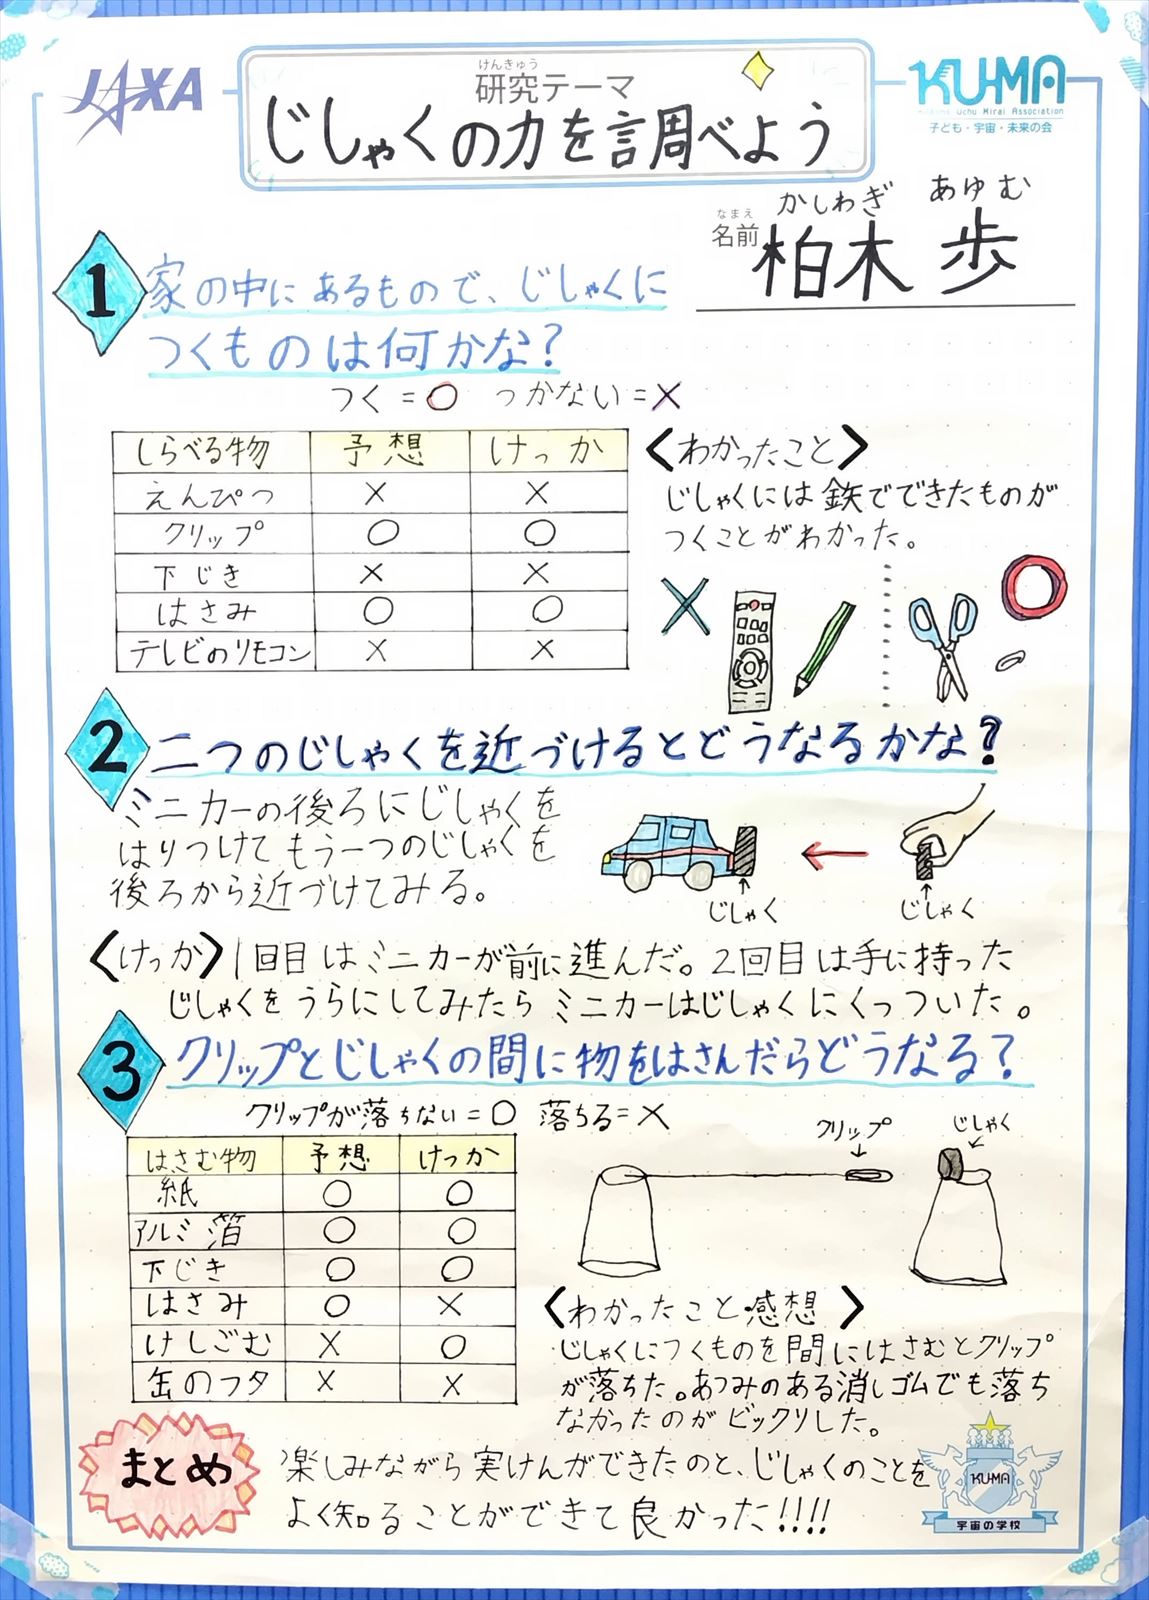 JAXA
KU-MA
Kodomo Uchu Mirai Association
子ども・宇宙・未来の会
けんきゅう
研究テーマ
じしゃくの力を調べよう
かしわぎ あゆむ
なまえ
名前 柏木 歩
1 家の中にあるもので、じしゃくに
つくものは何かな?
つく=○ つかない=×
しらべる物 予想 けっか
えんぴつ × ×
クリップ ○ ○
下じき × ×
はさみ ○ ○
テレビのリモコン × ×
<わかったこと>
じしゃくには鉄でできたものが
つくことがわかった。
×
○
2 二つのじしゃくを近づけるとどうなるかな?
ミニカーの後ろにじしゃくを
はりつけてもう一つのじしゃくを
後ろから近づけてみる。
じしゃく
じしゃく
<けっか>1回目はミニカーが前に進んだ。2回目は手に持った
じしゃくをうらにしてみたらミニカーはじしゃくにくっついた。
3 クリップとじしゃくの間に物をはさんだらどうなる?
クリップが落ちない=○ 落ちる=×
はさむ物 予想 けっか
紙 ○ ○
アルミ箔 ○ ○
下じき ○ ○
はさみ ○ ×
けしごむ × ○
缶のフタ × ×
クリップ
じしゃく
<わかったこと・感想>
じしゃくにつくものを間にはさむとクリップ
が落ちた。あつみのある消しゴムでも落ち
なかったのがビックリした。
まとめ
楽しみながら実けんができたのと、じしゃくのことを
よく知ることができて良かった!!!!
KU-MA
宇宙の学校